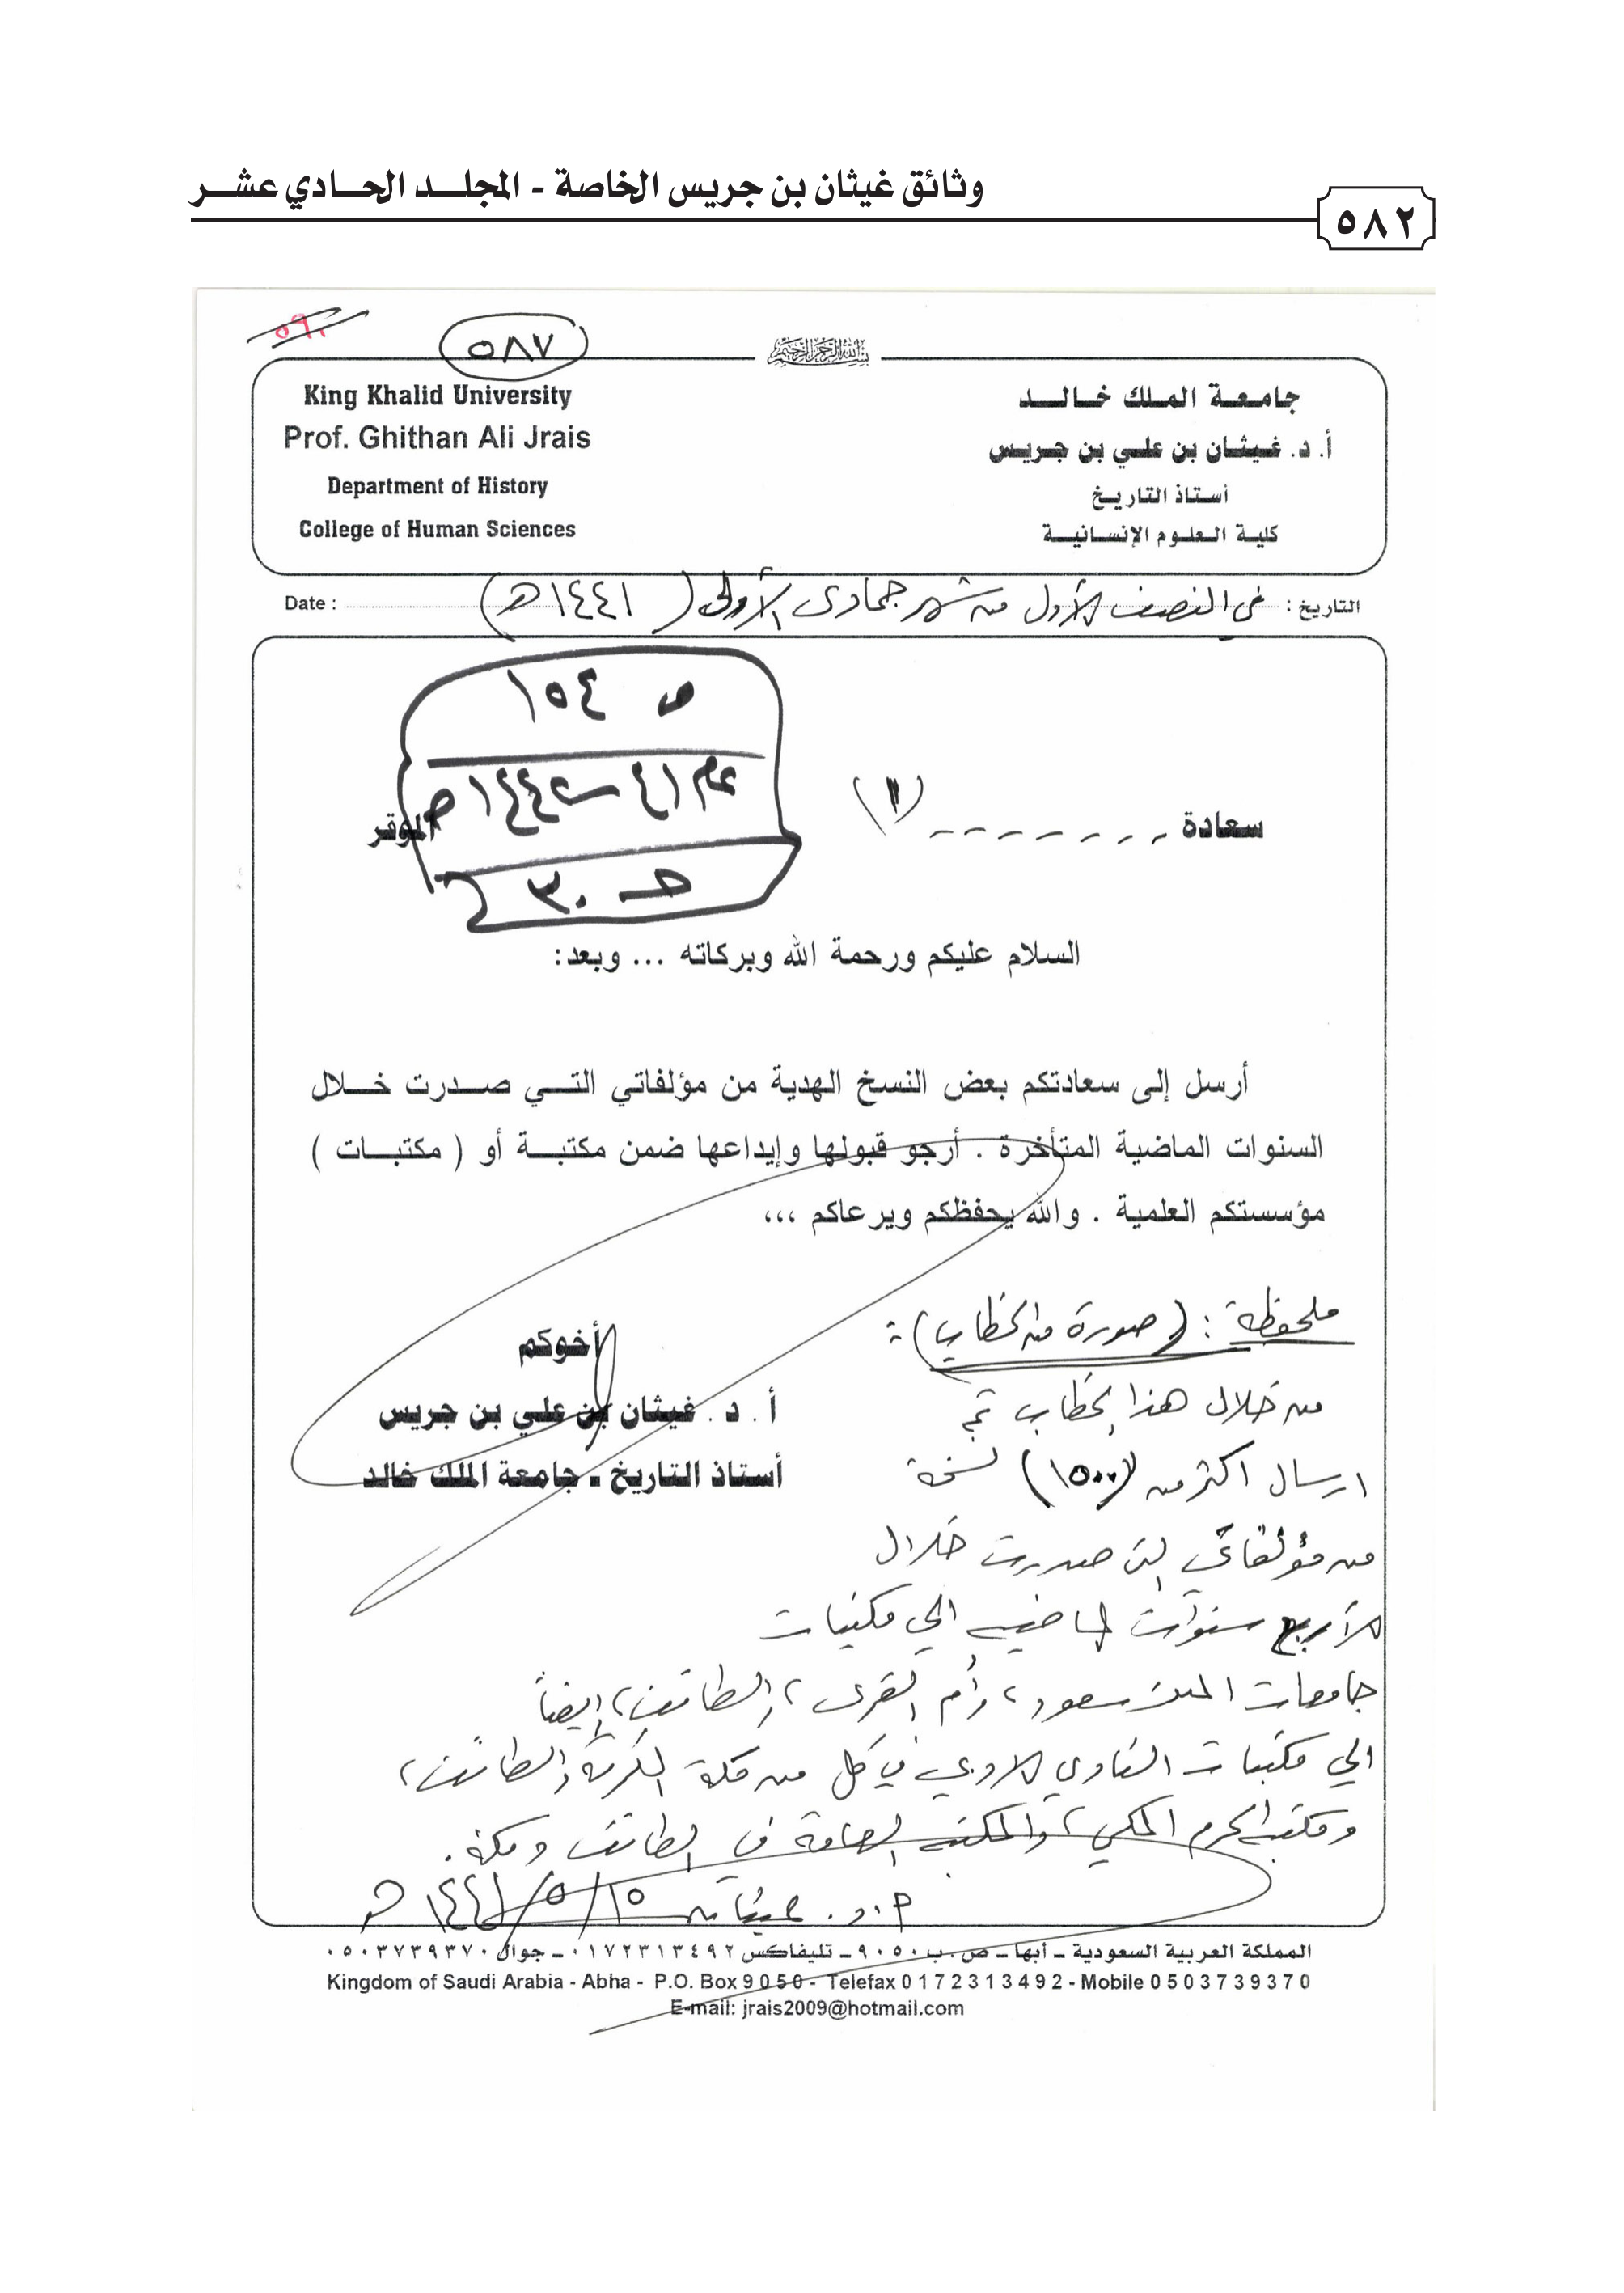 وثائق غيثان بن جريس الخاصة - المجلد الحادي عشر
٥٨٢
٥٩٠
٥٨٧
بسم الله الرحمن الرحيم
جامعة الملك خالد
أ. د. غيثان بن علي بن جريس
أستاذ التاريخ
كلية العلوم الإنسانية
King Khalid University
Prof. Ghithan Ali Jrais
Department of History
College of Human Sciences
التاريخ : في النصف الأول من شهر جمادى الأولى (١٤٤١هـ) Date :
ص ١٥٤
عام ٤١ - ١٤٤٢هـ
حـ ٣٠
سعادة - - - - - - - (١) الموقر
السلام عليكم ورحمة الله وبركاته ... وبعد:
أرسل إلى سعادتكم بعض النسخ الهدية من مؤلفاتي التي صدرت خلال
السنوات الماضية المتأخرة . أرجو قبولها وإيداعها ضمن مكتبة أو ( مكتبات )
مؤسستكم العلمية . والله يحفظكم ويرعاكم ،،،
أخوكم
أ. د. غيثان بن علي بن جريس
أستاذ التاريخ ـ جامعة الملك خالد
ملحوظة : (صورة من الخطاب) :
من خلال هذا الخطاب تم
ارسال اكثر من (١٥٠٠) نسخة
من مؤلفاتي التي صدرت خلال
الأربع سنوات الماضية الى مكتبات
جامعات الملك سعود، وأم القرى، والطائف، وايضاً
الى مكتبات النادي الادبي في كل من مكة المكرمة والطائف،
ومكتبة الحرم المكي، والمكتبة العامة في الطائف ومكة.
أ. د. غيثان ١٥/٥/١٤٤١هـ
المملكة العربية السعودية ـ أبها ـ ص.ب ٩٠٥٠ ـ تليفاكس ٠١٧٢٣١٣٤٩٢ ـ جوال ٠٥٠٣٧٣٩٣٧٠
Kingdom of Saudi Arabia - Abha - P.O. Box 9050 - Telefax 0172313492 - Mobile 0503739370
E-mail: jrais2009@hotmail.com